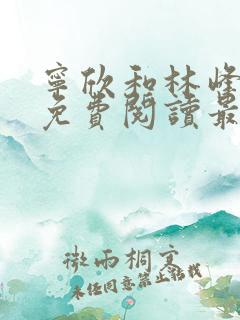 寧欣和林峰
免費閱讀最
微雨桐
未任同意禁止